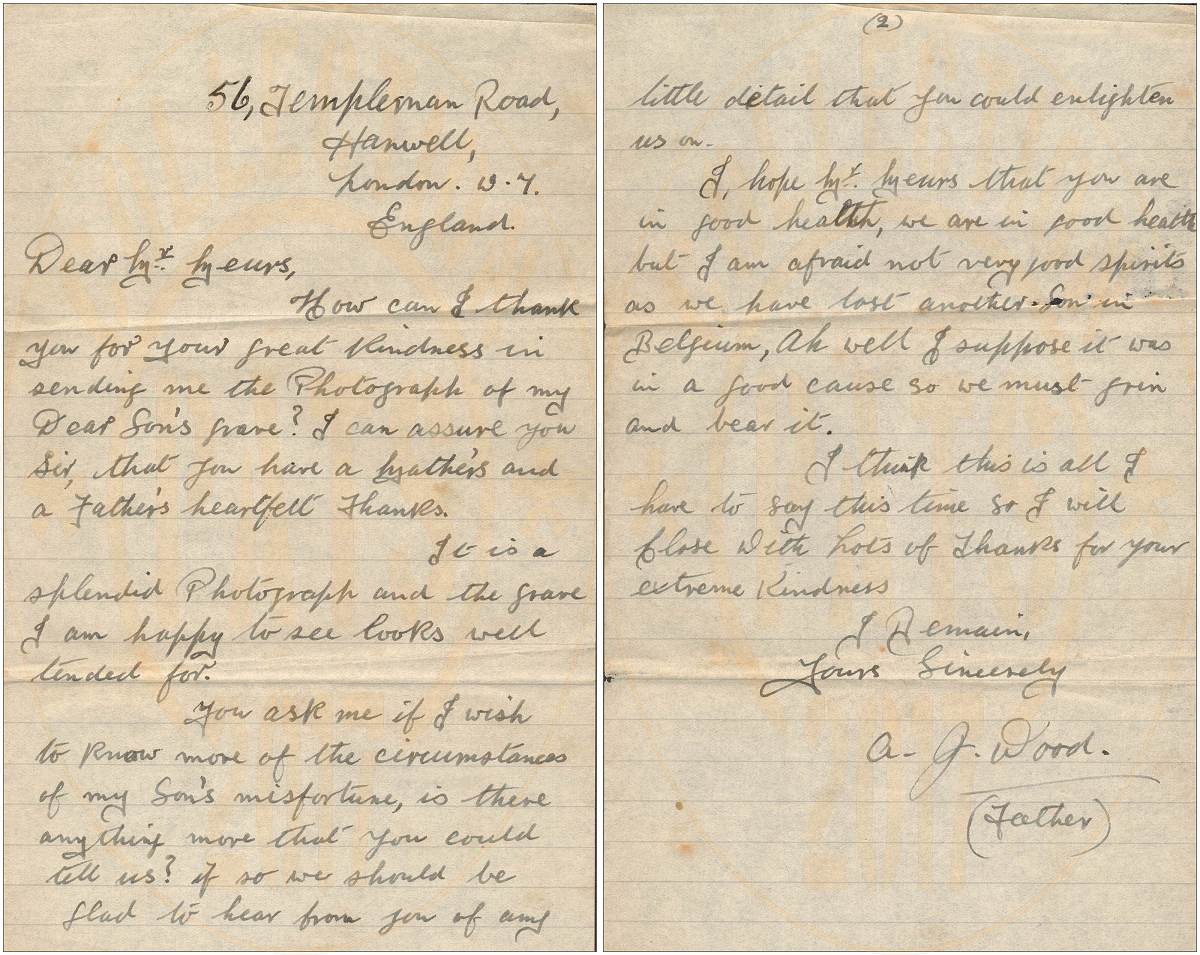 56, Templeman Road,
Hanwell,
London. W. 7.
England.
Dear Mr. Meurs,
How can I thank
you for your great Kindness in
sending me the Photograph of my
Dear Son's grave? I can assure you
Sir, that you have a Mother's and
a Father's heartfelt Thanks.
It is a
splendid Photograph and the grave
I am happy to see looks well
tended for.
You ask me if I wish
to know more of the circumstances
of my Son's misfortune, is there
anything more that you could
tell us? if so we should be
glad to hear from you of any
(2)
little detail that you could enlighten
us on.
I, hope Mr. Meurs that you are
in good health, we are in good health
but I am afraid not very good spirits
as we have lost another Son in
Belgium, Ah well I suppose it was
in a good cause so we must grin
and bear it.
I think this is all I
have to say this time so I will
Close With Lots of Thanks for your
extreme Kindness
I Remain,
Yours Sincerely
A. J. Wood.
(Father)